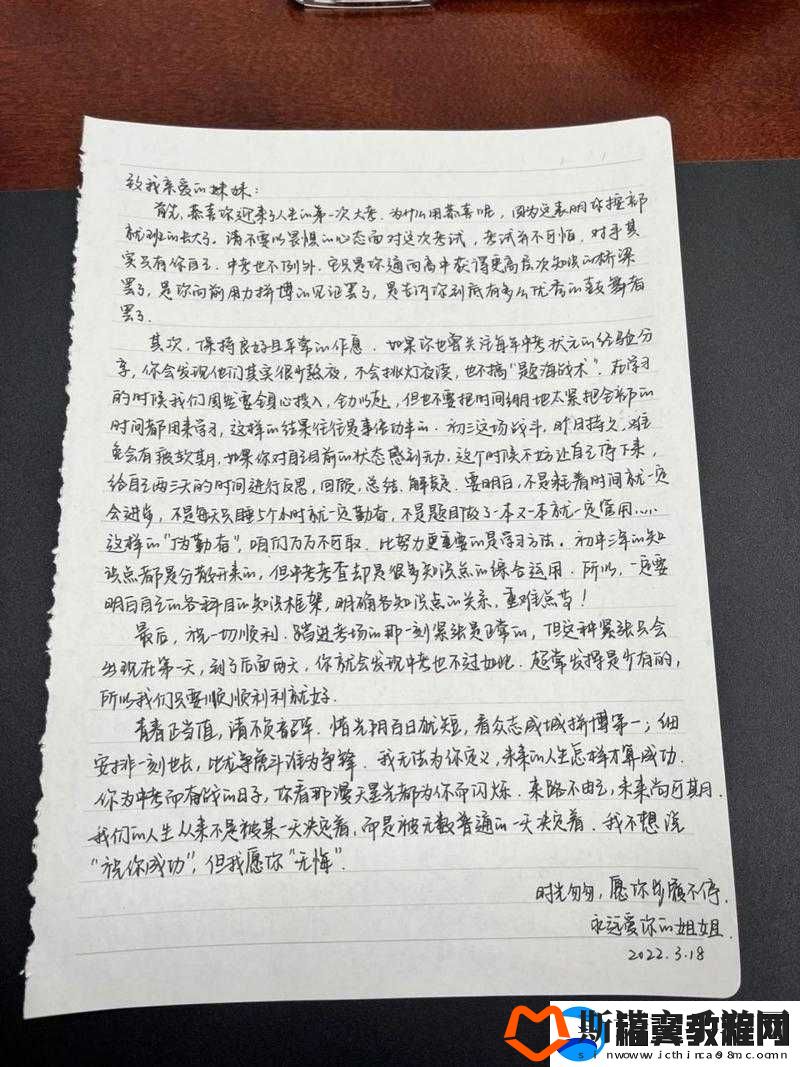 致我亲爱的妹妹：
首先，恭喜你迎来了人生的第一次大考。为什么用恭喜呢，因为这表明你按部
就班的长大了。请不要以畏惧的心态面对这次考试，考试并不可怕，对手其
实只有你自己。中考也不例外。它只是你通向高中获得更高层次知识的桥梁
罢了，是你向前用力拼搏的见证罢了，是告诉你到底有多么优秀的鼓舞者
罢了。
其次，保持良好且平常的作息。如果你也曾关注每年中考状元的经验分
享，你会发现他们其实很少熬夜，不会挑灯夜读，也不搞“题海战术”。在学习
的时候我们固然要全身心投入，全力以赴，但也不要把时间绷地太紧把全部的
时间都用来学习，这样的结果往往是事倍功半的。初三这场战斗，旷日持久，难
免会有疲软期，如果你对自己目前的状态感到无力。这个时候不妨让自己停下来，
给自己两三天的时间进行反思，回顾，总结，解疑。要明白，不是耗着时间就一定
会进步，不是每天只睡5个小时就一定勤奋，不是题目做了一本又一本就一定管用……
这样的“伪勤奋”，咱们万万不可取。比努力更重要的是学习方法。初中三年的知
识点都是分散开来的，但中考考查却是很多知识点的综合运用。所以，一定要
明白自己的各科目的知识框架，明确各知识点的关系，重难点等！
最后，祝一切顺利。踏进考场的那一刻紧张是正常的，但这种紧张只会
出现在第一天，到了后面两天，你就会发现中考也不过如此。超常发挥是少有的，
所以我们只要顺顺利利就好。
青春正当值，请不负韶华。惜光阴百日犹短，看众志成城拼搏第一；细
安排一刻也长，比龙争虎斗谁为争锋。我无法为你定义，未来的人生怎样才算成功。
你为中考而奋战的日子，你看那漫天星光都为你而闪烁。来路不由己，未来尚可期。
我们的人生从来不是被某一天决定着，而是被无数普通的一天决定着。我不想说
“祝你成功”，但我愿你“无悔”。
时光匆匆，愿你步履不停。
永远爱你的姐姐。
2022.3.18
教程网